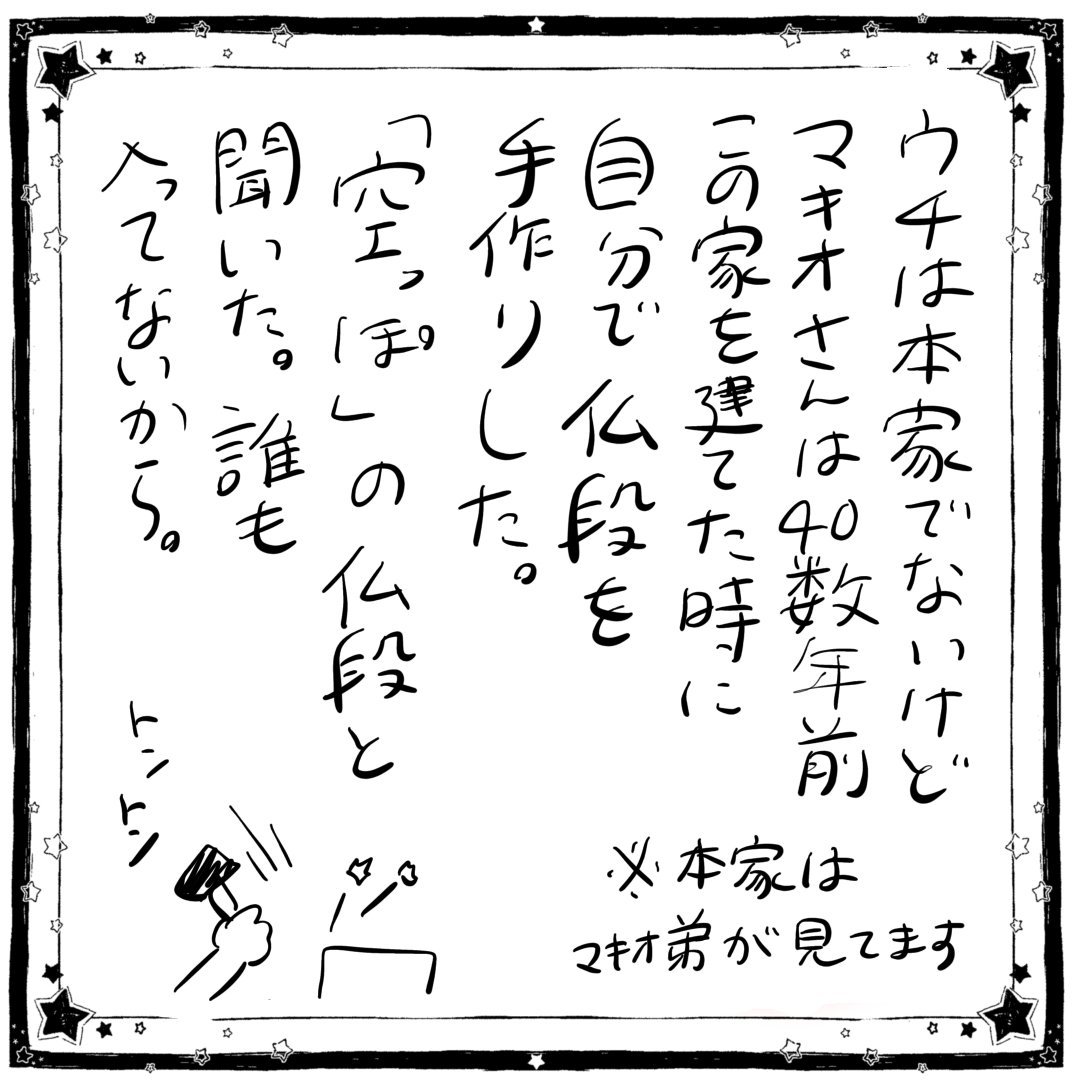 ウチは本家でないけど
マキオさんは40数年前
この家を建てた時に
自分で仏段を
手作りした。
「空っぽ」の仏段と
聞いた。誰も
入ってないから。
※本家は
マキオ弟が見てます
トントン